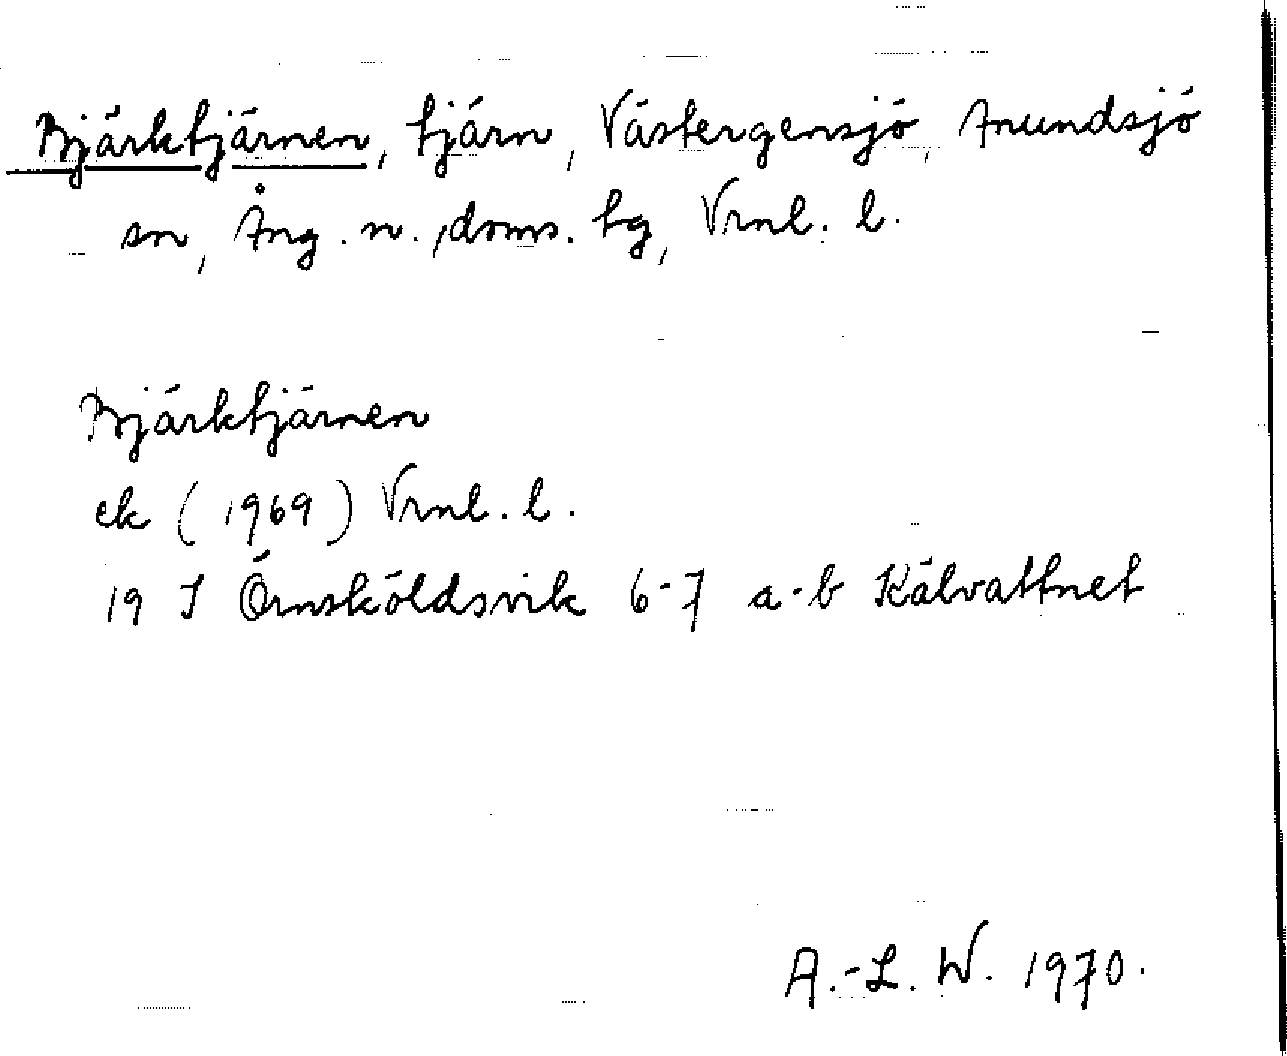 Bjärktjärnen, tjärn, Västergensjö, Anundsjö
sn, Ång. n., doms. tg, Vrnl. l.
Bjärktjärnen
ek (1969) Vrnl. l.
19 I Örnsköldsvik 6-7 a-b Kälvattnet
A.-L. W. 1970.